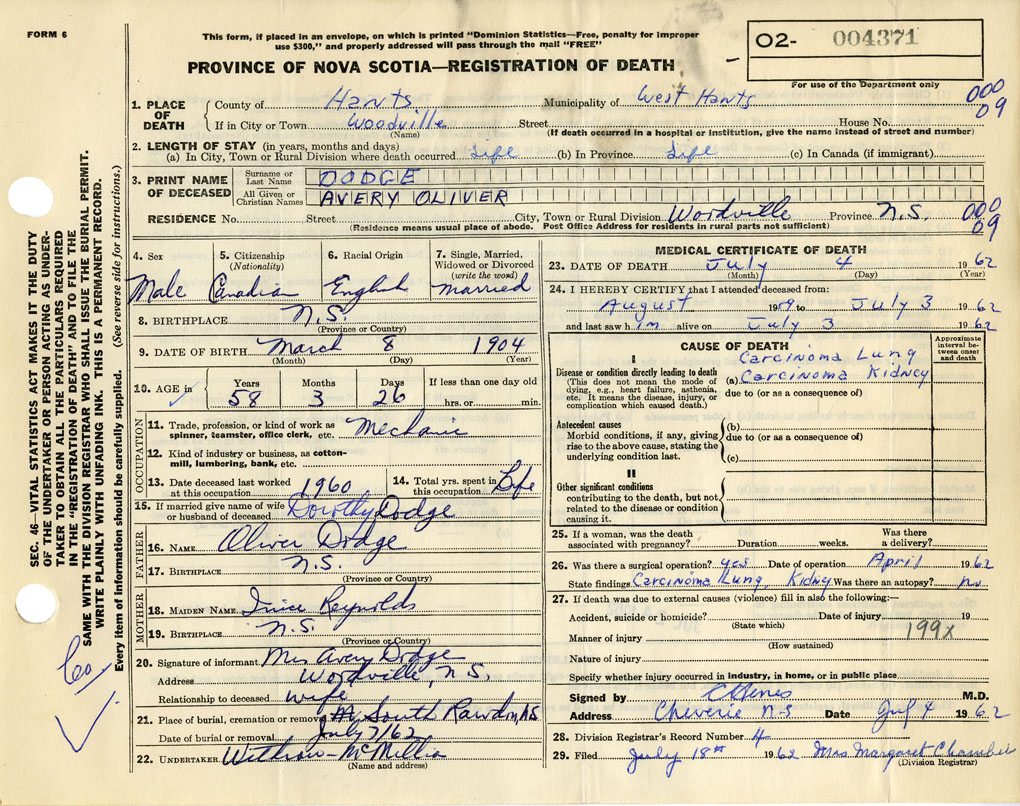 FORM 6
This form, if placed in an envelope, on which is printed "Dominion Statistics—Free, penalty for improper
use $300," and properly addressed will pass through the mail "FREE"
PROVINCE OF NOVA SCOTIA—REGISTRATION OF DEATH
O2- 004371
For use of the Department only
000
09
1. PLACE OF DEATH County of Hants Municipality of West Hants
If in City or Town Woodville Street House No.
(Name) (If death occurred in a hospital or institution, give the name instead of street and number)
2. LENGTH OF STAY (in years, months and days)
(a) In City, Town or Rural Division where death occurred Life (b) In Province Life (c) In Canada (if immigrant)
3. PRINT NAME OF DECEASED
Surname or Last Name DODGE
All Given or Christian Names AVERY OLIVER
RESIDENCE No. Street City, Town or Rural Division Woodville Province N.S. 000
09
(Residence means usual place of abode. Post Office Address for residents in rural parts not sufficient)
4. Sex 5. Citizenship (Nationality) 6. Racial Origin 7. Single, Married, Widowed or Divorced (write the word)
Male Canadian English married
8. BIRTHPLACE N.S.
(Province or Country)
9. DATE OF BIRTH March 8 1904
(Month) (Day) (Year)
10. AGE in Years Months Days If less than one day old
58 3 26 hrs. or min.
OCCUPATION
11. Trade, profession, or kind of work as
spinner, teamster, office clerk, etc. Mechanic
12. Kind of industry or business, as cotton-
mill, lumbering, bank, etc.
13. Date deceased last worked at this occupation 1960 14. Total yrs. spent in this occupation Life
15. If married give name of wife
or husband of deceased Dorothy Dodge
FATHER
16. NAME Oliver Dodge
17. BIRTHPLACE N.S.
(Province or Country)
MOTHER
18. MAIDEN NAME Reynolds
19. BIRTHPLACE N.S.
(Province or Country)
20. Signature of informant Mrs Avery Dodge
Address Woodville, N.S.
Relationship to deceased wife
21. Place of burial, cremation or removal South Rawdon N.S
Date of burial or removal July 7/62
22. UNDERTAKER
(Name and address)
MEDICAL CERTIFICATE OF DEATH
23. DATE OF DEATH July 4 1962
(Month) (Day) (Year)
24. I HEREBY CERTIFY that I attended deceased from:
August 19 to July 3 1962
and last saw him alive on July 3 1962
CAUSE OF DEATH
Approximate interval between onset and death
I
Carcinoma Lung
Disease or condition directly leading to death (a) Carcinoma Kidney
(This does not mean the mode of
dying, e.g., heart failure, asthenia,
etc. It means the disease, injury, or
complication which caused death.)
due to (or as a consequence of)
Antecedent causes
Morbid conditions, if any, giving
rise to the above cause, stating the
underlying condition last.
(b)
due to (or as a consequence of)
(c)
II
Other significant conditions
contributing to the death, but not
related to the disease or condition
causing it.
25. If a woman, was the death associated with pregnancy? Duration weeks. Was there a delivery?
26. Was there a surgical operation? yes Date of operation April 1962
State findings Carcinoma Lung, Kidny Was there an autopsy? no
27. If death was due to external causes (violence) fill in also the following:—
Accident, suicide or homicide? Date of injury 19
(State which) 199x
Manner of injury
(How sustained)
Nature of injury
Specify whether injury occurred in industry, in home, or in public place
Signed by M.D.
Address Cheverie N-S Date July 4 1962
28. Division Registrar's Record Number 4
29. Filed July 18th 1962 Mrs Margaret Chamber
(Division Registrar)
SEC. 46—VITAL STATISTICS ACT MAKES IT THE DUTY
OF THE UNDERTAKER OR PERSON ACTING AS UNDER-
TAKER TO OBTAIN ALL THE PARTICULARS REQUIRED
IN THE "REGISTRATION OF DEATH" AND TO FILE THE
SAME WITH THE DIVISION REGISTRAR WHO SHALL ISSUE THE BURIAL PERMIT.
WRITE PLAINLY WITH UNFADING INK. THIS IS A PERMANENT RECORD.
Every item of information should be carefully supplied. (See reverse side for instructions.)